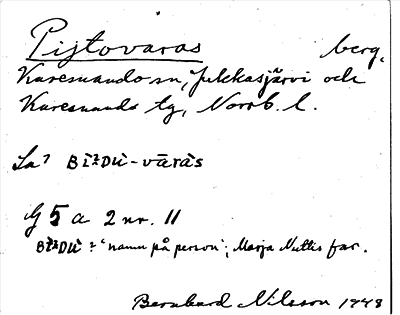 Pijtovaras berg,
Karesuando sn, Jukkasjärvi och
Karesuando tg, Norrb. l.
La? Bì²Dù-vārȧs
G 5 a 2 nr. 11
Bì²Dù: 'namn på person'; Marja Nuttis far.
Bernhard Nilsson 1943